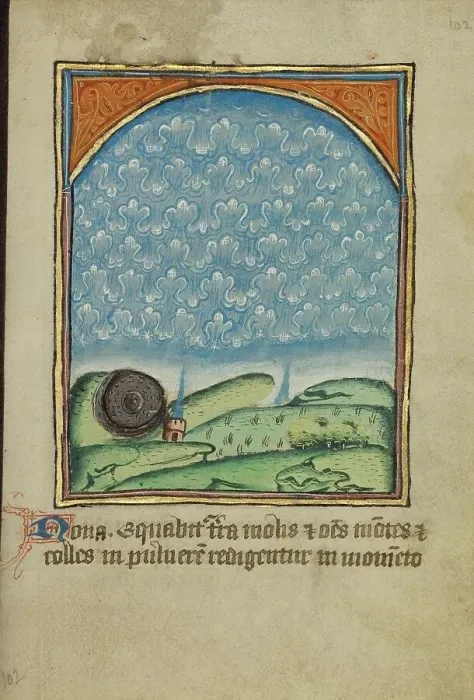 102
Nona. Equabit᷑ t̄ra molis ⁊ oēs mōtes ⁊
colles in puluerē redigentur in momēto
102